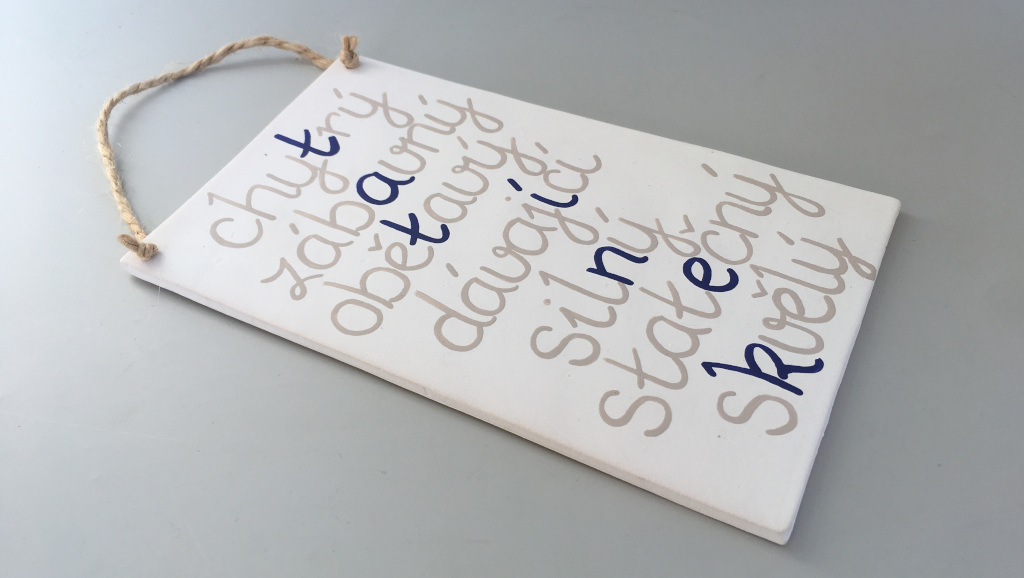 chytrý
zábavný
obětavý
dávající
silný
statečný
skvělý